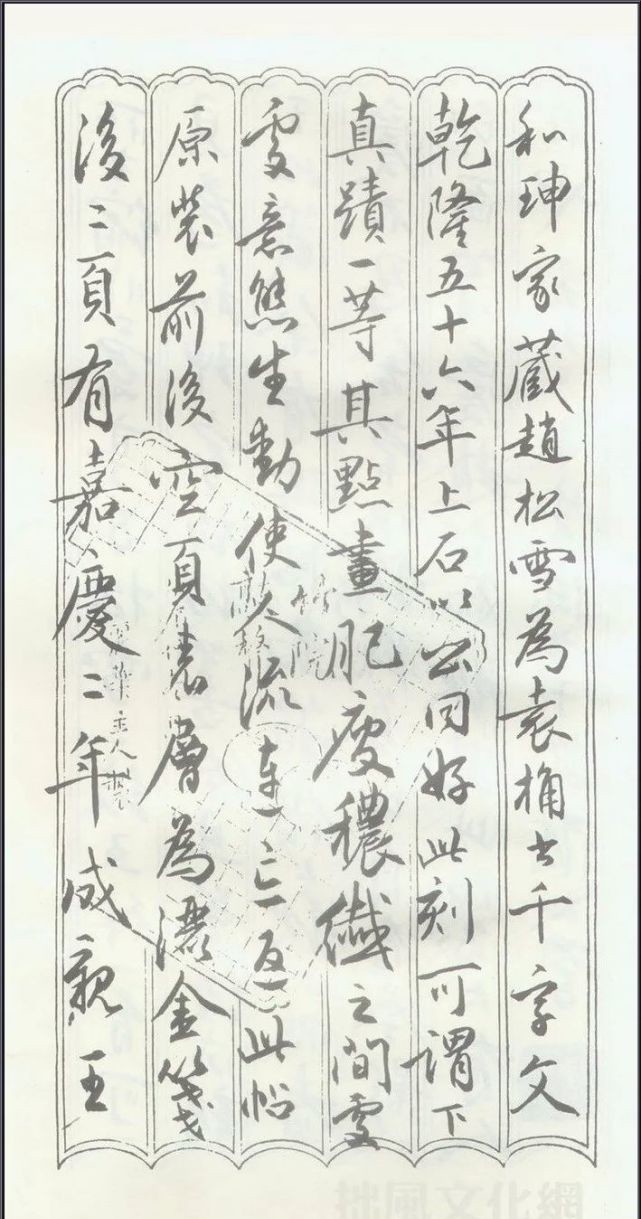 和珅家藏趙松雪為袁桷书千字文
乾隆五十六年上石以公同好此刻可謂下
真蹟一等其點畫肥瘦穠纖之間處
處意態生動使人流連忘返此帖
原裝前後空頁表層為灑金箋
後二頁有嘉慶二年成親王
拙風文化網